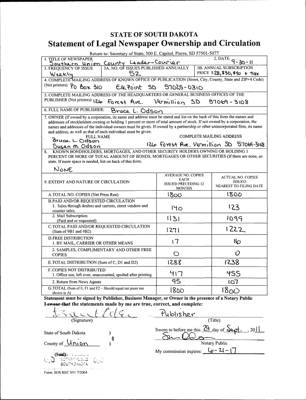 STATE OF SOUTH DAKOTA
Statement of Legal Newspaper Ownership and Circulation
Return to: Secretary of State, 500 E. Capitol, Pierre, SD 57501-5077
1. TITLE OF NEWSPAPER 2. DATE
Southern Union County Leader-Courier 9-30-11
3. FREQUENCY OF ISSUE 3A. NO. OF ISSUES PUBLISHED ANNUALLY 3B. ANNUAL SUBSCRIPTION
Weekly 52 PRICE
4. COMPLETE MAILING ADDRESS OF KNOWN OFFICE OF PUBLICATION (Street, City, County, State and ZIP+4 Code)
(Not printers) PO Box 310 Elk Point SD 57025-0310
5. COMPLETE MAILING ADDRESS OF THE HEADQUARTERS OR GENERAL BUSINESS OFFICES OF THE
PUBLISHER (Not printers) 1216 Forest Ave. Vermillion SD 57069-3108
6. FULL NAME OF PUBLISHER: Bruce L. Odson
7. OWNER (If owned by a corporation, its name and address must be stated and list on the back of this form the names and
addresses of stockholders owning or holding 1 percent or more of total amount of stock. If not owned by a corporation, the
names and addresses of the individual owners must be given. If owned by a partnership or other unincorporated firm, its name
and address, as well as that of each individual must be given.
FULL NAME COMPLETE MAILING ADDRESS
Bruce L. Odson
Susan M. Odson 1216 Forest Ave. Vermillion SD 57069-3108
8. KNOWN BONDHOLDERS, MORTGAGEES, AND OTHER SECURITY HOLDERS OWNING OR HOLDING 1
PERCENT OR MORE OF TOTAL AMOUNT OF BONDS, MORTGAGES OR OTHER SECURITIES (If there are none, so
state. If more space is needed, list on back of this form.
NONE
9. EXTENT AND NATURE OF CIRCULATION AVERAGE NO. COPIES EACH ISSUED PRECEDING 12 MONTHS ACTUAL NO. COPIES ISSUED NEAREST TO FILING DATE
A. TOTAL NO. COPIES (Net Press Run) 1800 1800
B. PAID AND/OR REQUESTED CIRCULATION
1. Sales through dealers and carriers, street vendors and
counter sales. 140 123
2. Mail Subscription
(Paid and or requested) 1131 1099
C. TOTAL PAID AND/OR REQUESTED CIRCULATION
(Sum of 9B1 and 9B2) 1271 1222
D. FREE DISTRIBUTION
1. BY MAIL, CARRIER OR OTHER MEANS 17 16
2. SAMPLES, COMPLIMENTARY AND OTHER FREE
COPIES 0 0
E. TOTAL DISTRIBUTION (Sum of C, D1 and D2) 1288 1238
F. COPIES NOT DISTRIBUTED
1. Office use, left over, unaccounted, spoiled after printing 417 455
2. Return from News Agents 95 107
G. TOTAL (Sum of E, F1 and F2 - Should equal net press run
shown in A) 1800 1800
Statement must be signed by Publisher, Business Manager, or Owner in the presence of a Notary Public
I swear that the statements made by me are true, correct, and complete:
Publisher
(Signature) (Title)
State of South Dakota ) Sworn to before me this day of Sept. 2011.
County of Union )
Notary Public
My commission expires: 6-21-17